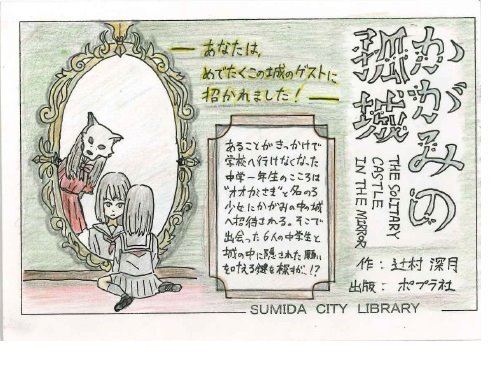 かがみの
孤城
THE SOLITARY
CASTLE
IN THE MIRROR
作：辻村 深月
出版：ポプラ社
あなたは、
めでたくこの城のゲストに
招かれました！
あることがきっかけで
学校へ行けなくなった
中学一年生のこころは
"オオカミさま"と名のる
少女にかがみの中の城
へ招待される。そこで
出会った6人の中学生と
城の中に隠された願い
を叶える鍵を探すが、!?
SUMIDA CITY LIBRARY